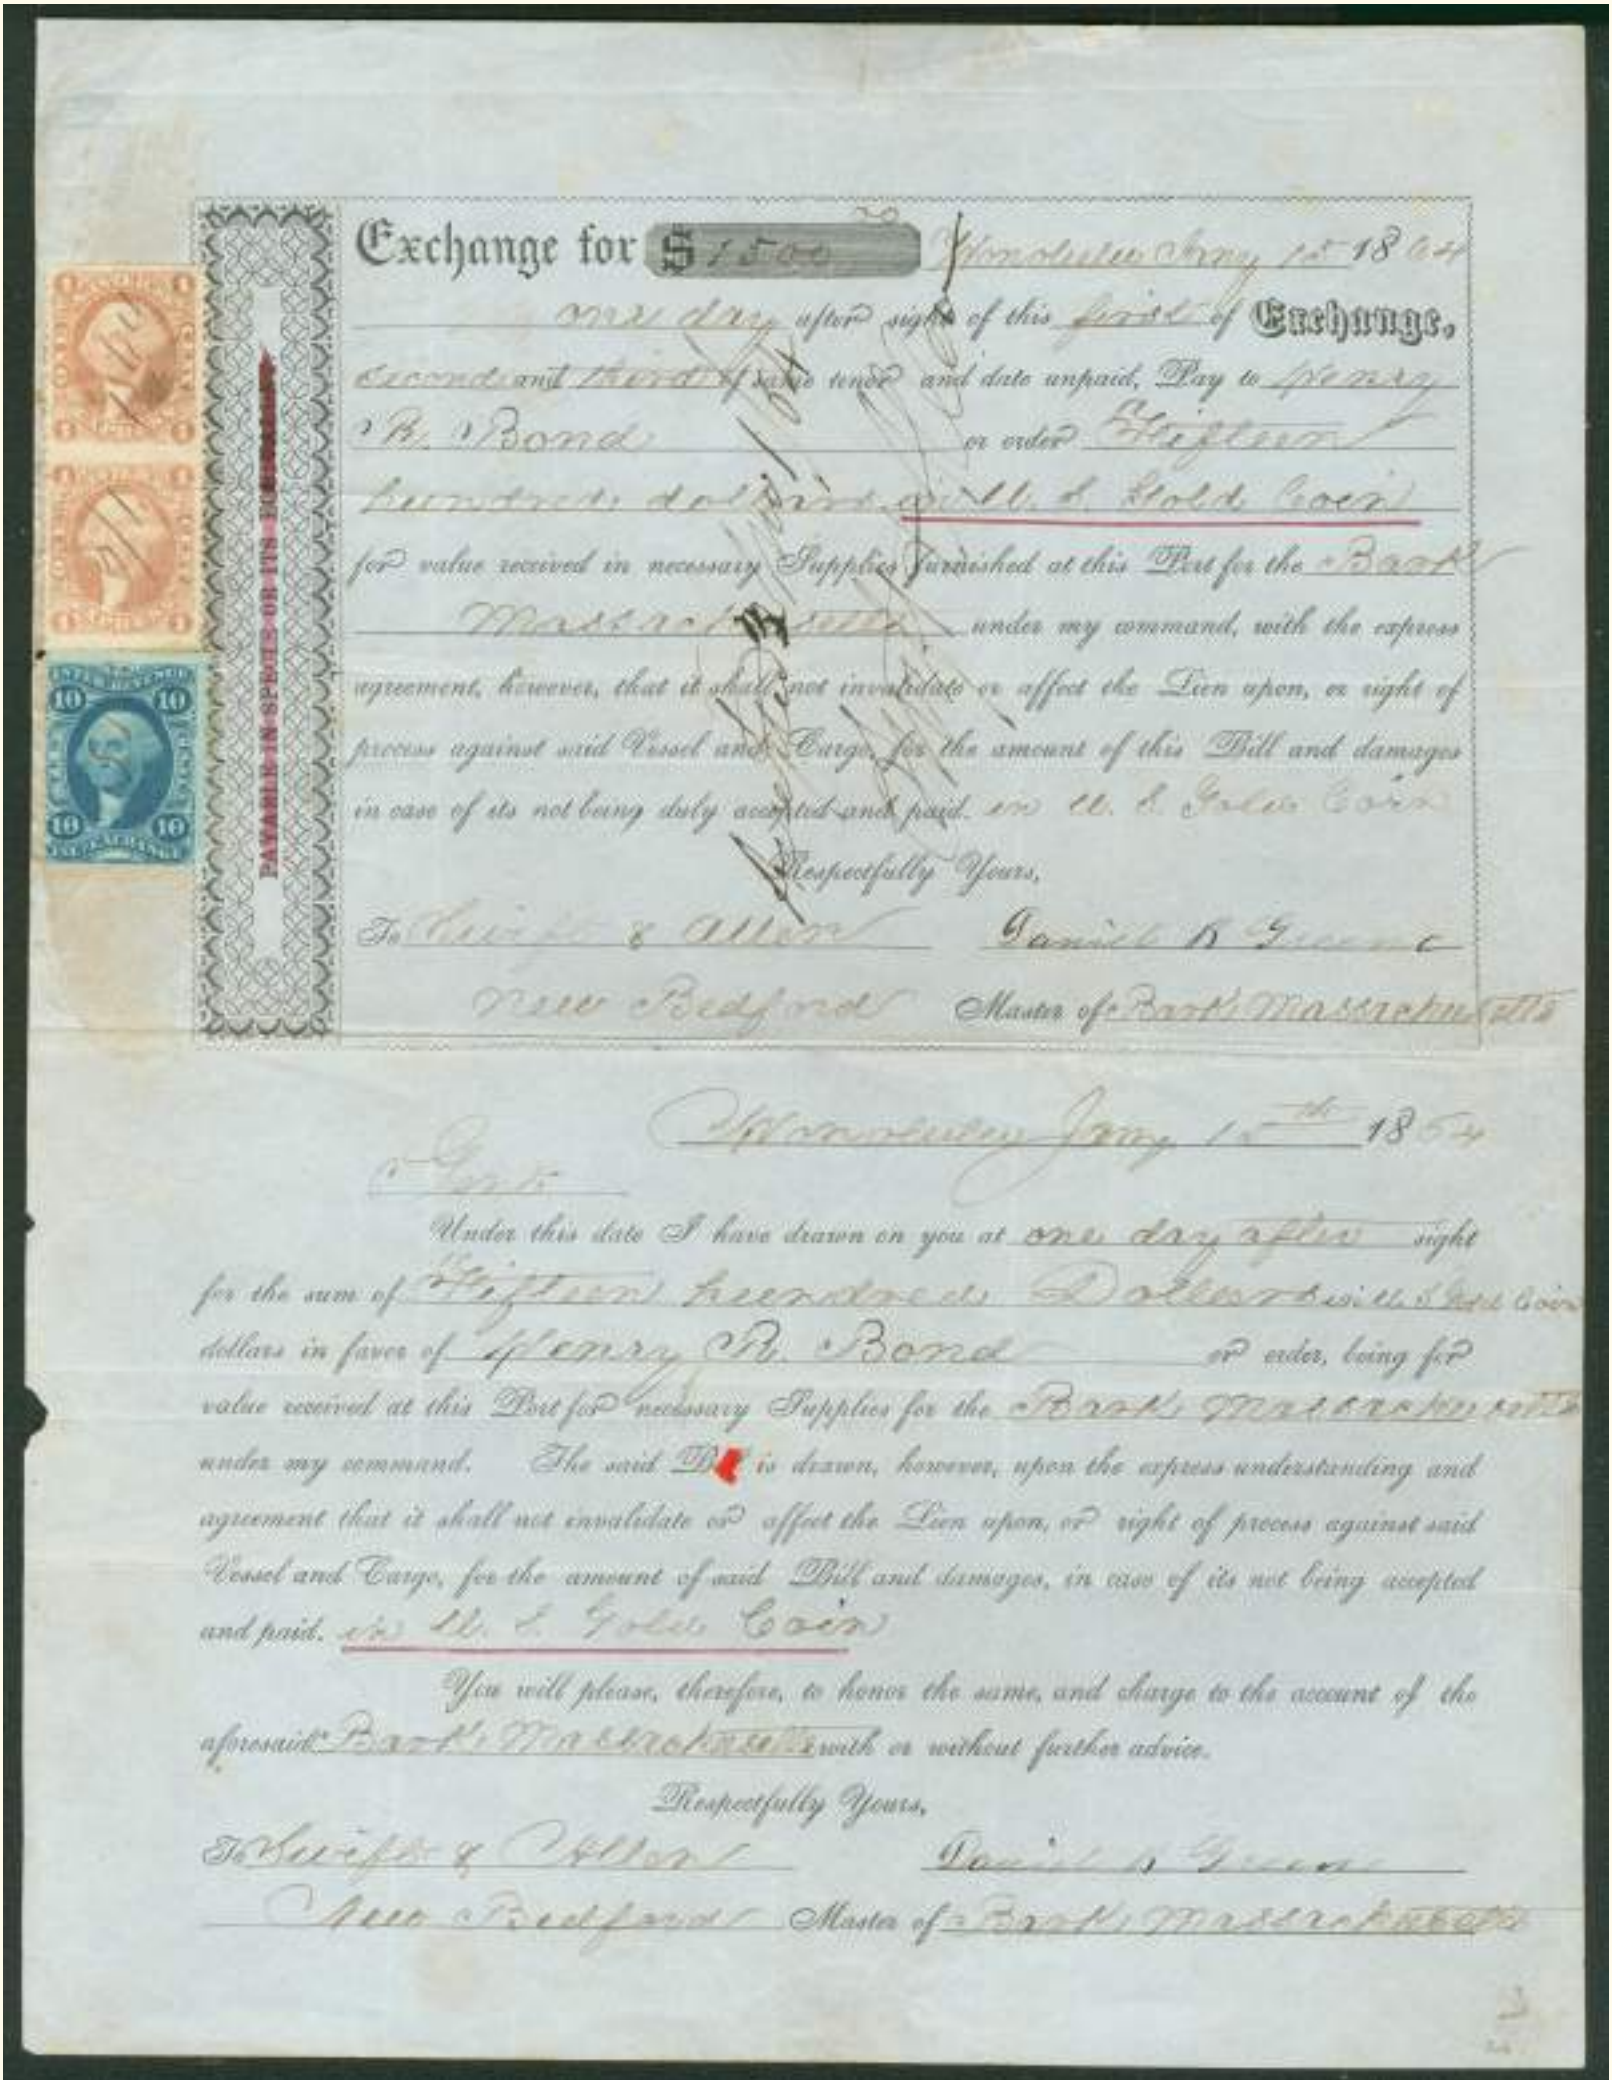 Exchange for $1500 Honolulu Jany 15 1864
one day after sight of this first of Exchange,
second and third of same tenor and date unpaid, Pay to Henry
R. Bond or order Fifteen
hundred dollars in U. S. Gold Coin
for value received in necessary Supplies furnished at this Port for the Bark
Massachusetts under my command, with the express
agreement, however, that it shall not invalidate or affect the Lien upon, or right of
process against said Vessel and Cargo, for the amount of this Bill and damages
in case of its not being duly accepted and paid. in U. S. Gold Coin
Respectfully Yours,
To Swift & Allen Daniel B Greene
New Bedford Master of Bark Massachusetts
PAYABLE IN SPECIE OR ITS
1 1
1 1
1 1
1 1
INTER. REVENUE
10 10
TEN CENTS
10 10
Honolulu Jany 15th 1864
Gents
Under this date I have drawn on you at one day after sight
for the sum of Fifteen hundred Dollars in U. S Gold Coin
dollars in favor of Henry R. Bond or order, being for
value received at this Port for necessary Supplies for the Bark Massachusetts
under my command. The said is drawn, however, upon the express understanding and
agreement that it shall not invalidate or affect the Lien upon, or right of process against said
Vessel and Cargo, for the amount of said Bill and damages, in case of its not being accepted
and paid. in U. S. Gold Coin
You will please, therefore, to honor the same, and charge to the account of the
aforesaid Bark Massachusetts with or without further advice.
Respectfully Yours,
To Swift & Allen Daniel B Greene
New Bedford Master of Bark Massachusetts